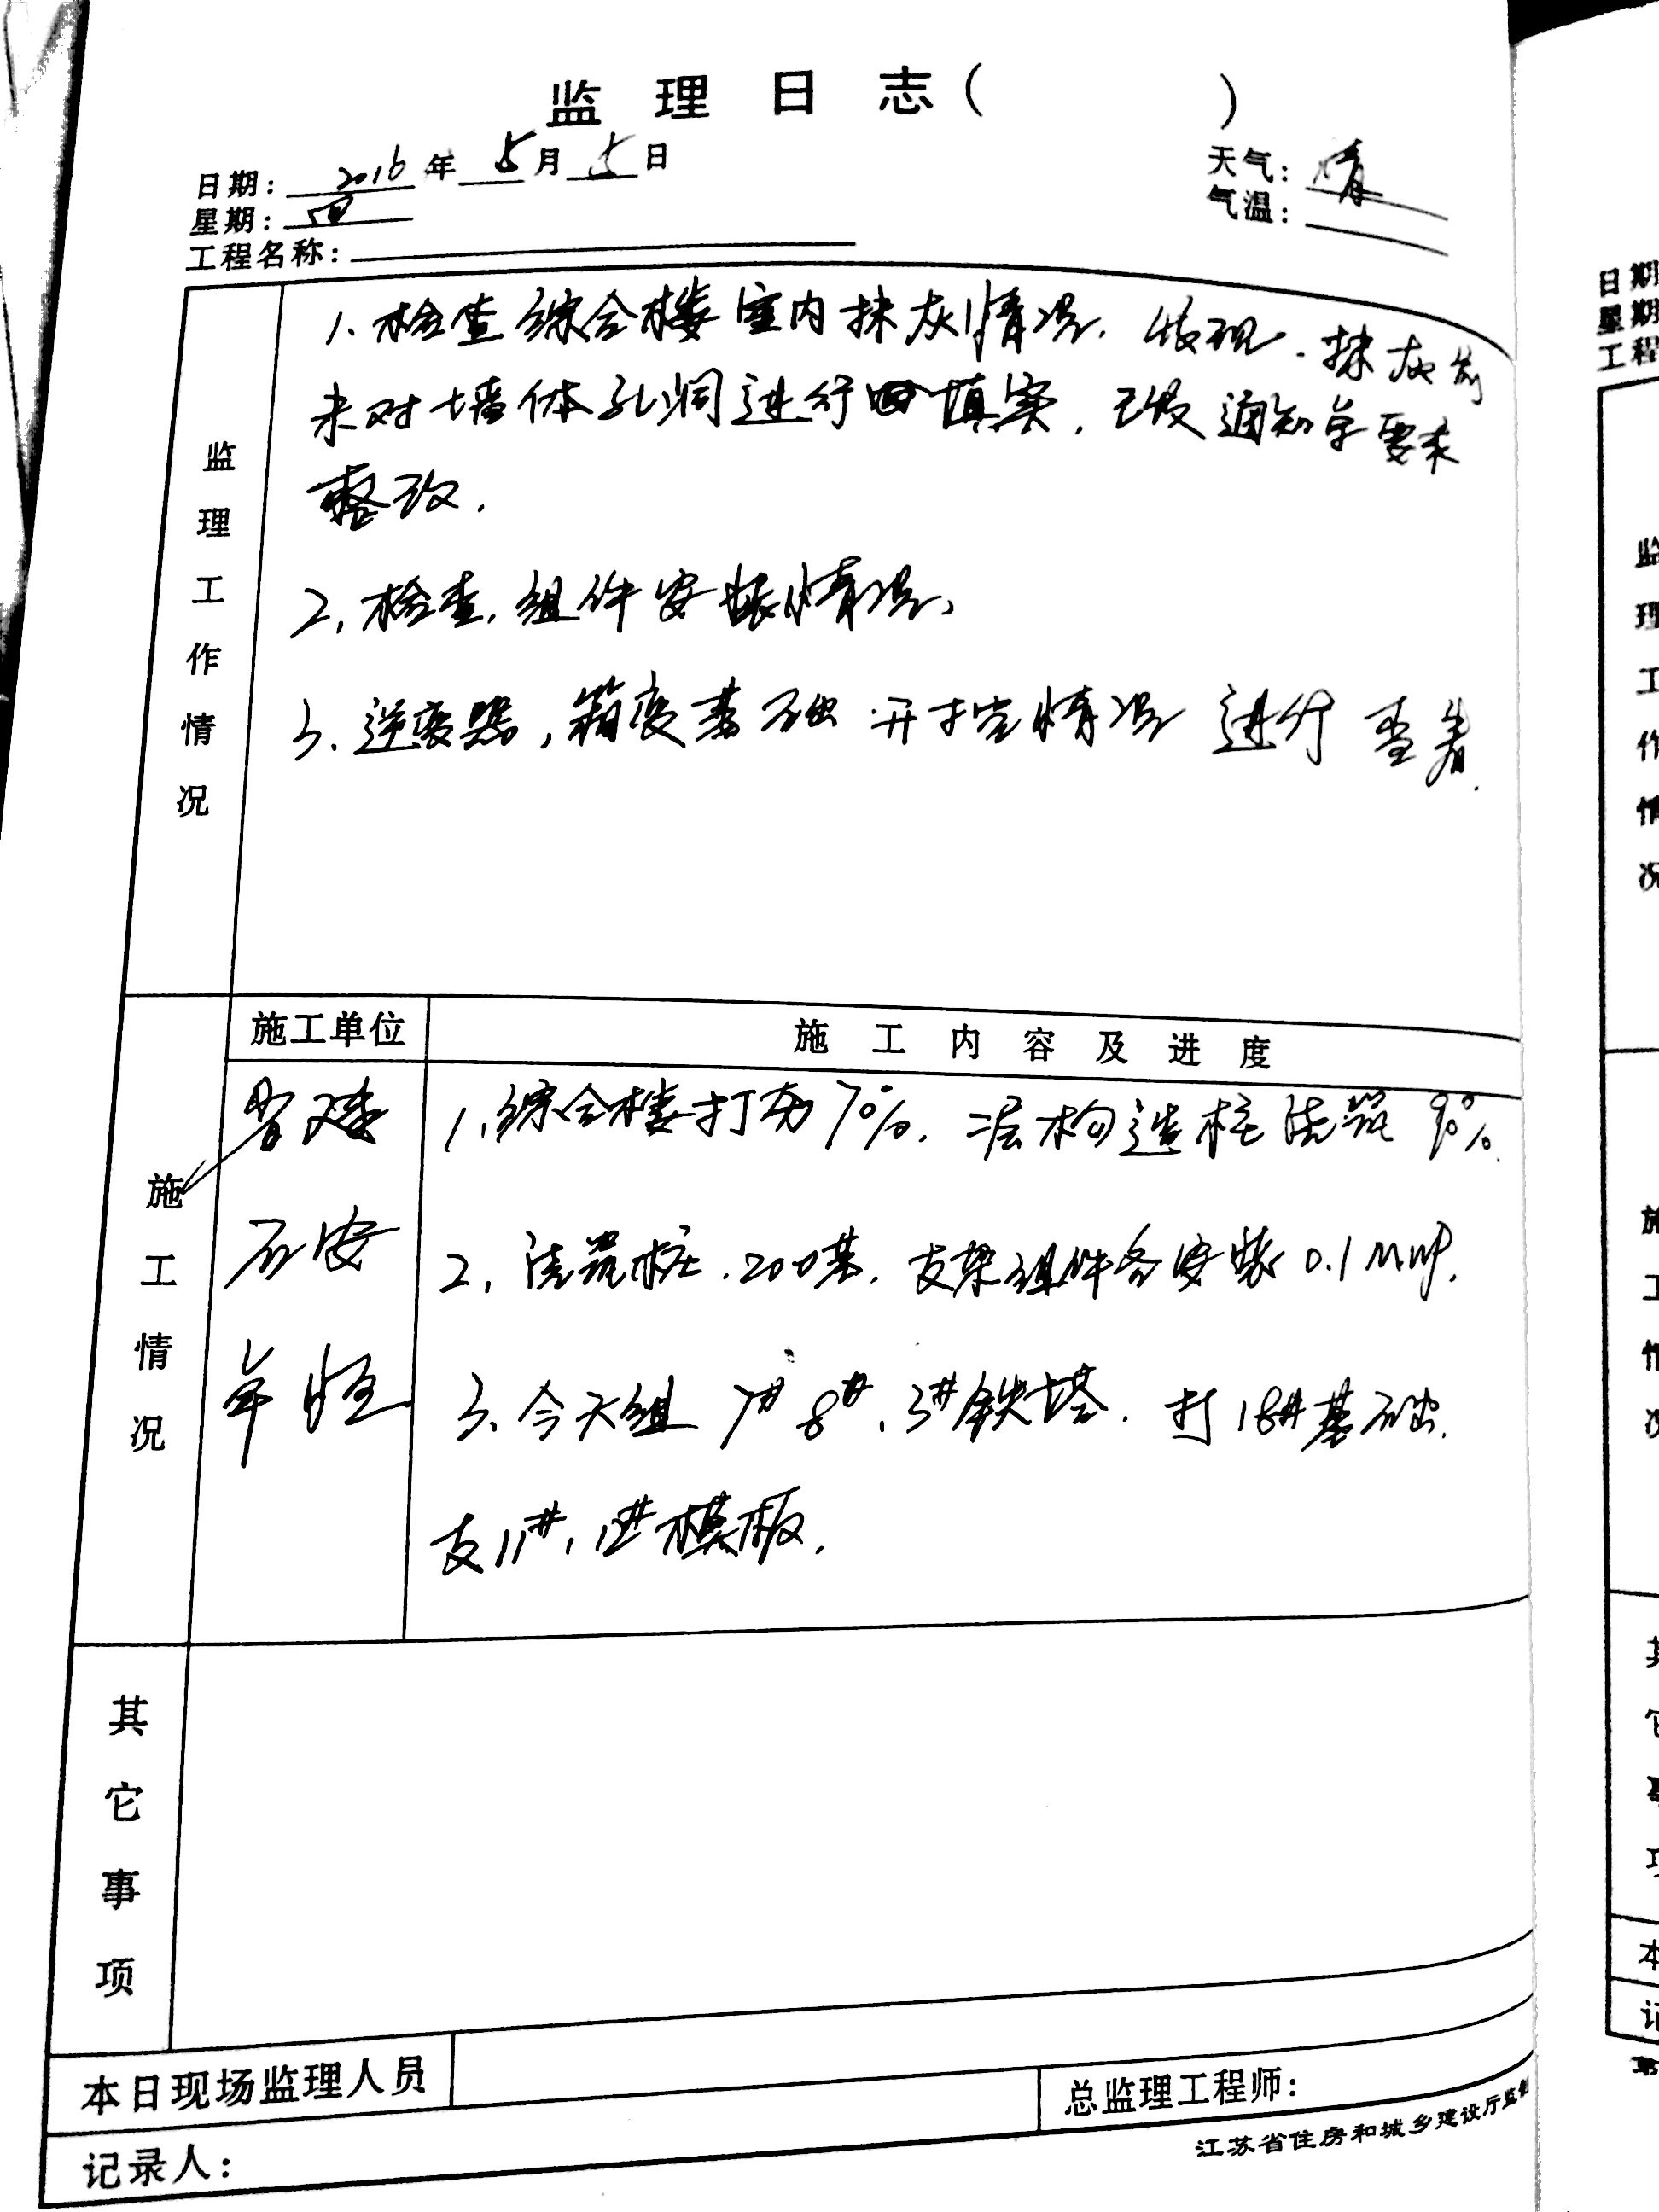 监理日志（ ）
日期：2016年5月5日
天气：晴
星期：四
气温：
工程名称：
监理工作情况
1、检查综合楼室内抹灰情况，发现，抹灰前
未对墙体孔洞进行填实，已发通知单要求
整改．
2、检查，组件安装情况、
3、逆变器，箱变基础开挖情况进行查看．
施工情况
施工单位
施工内容及进度
省建
1、综合楼打夯70%，二层构造柱浇筑90%．
石安
2、浇筑桩．200基，支架组件各安装0.1MWP．
年恒
3、今天组7#8#、3#铁塔．打18#基础．
支11#，12#模板．
其它事项
本日现场监理人员
总监理工程师：
记录人：
江苏省住房和城乡建设厅监制
日期
星期
工程
监理工作情况
施工情况
其它事项
本
记